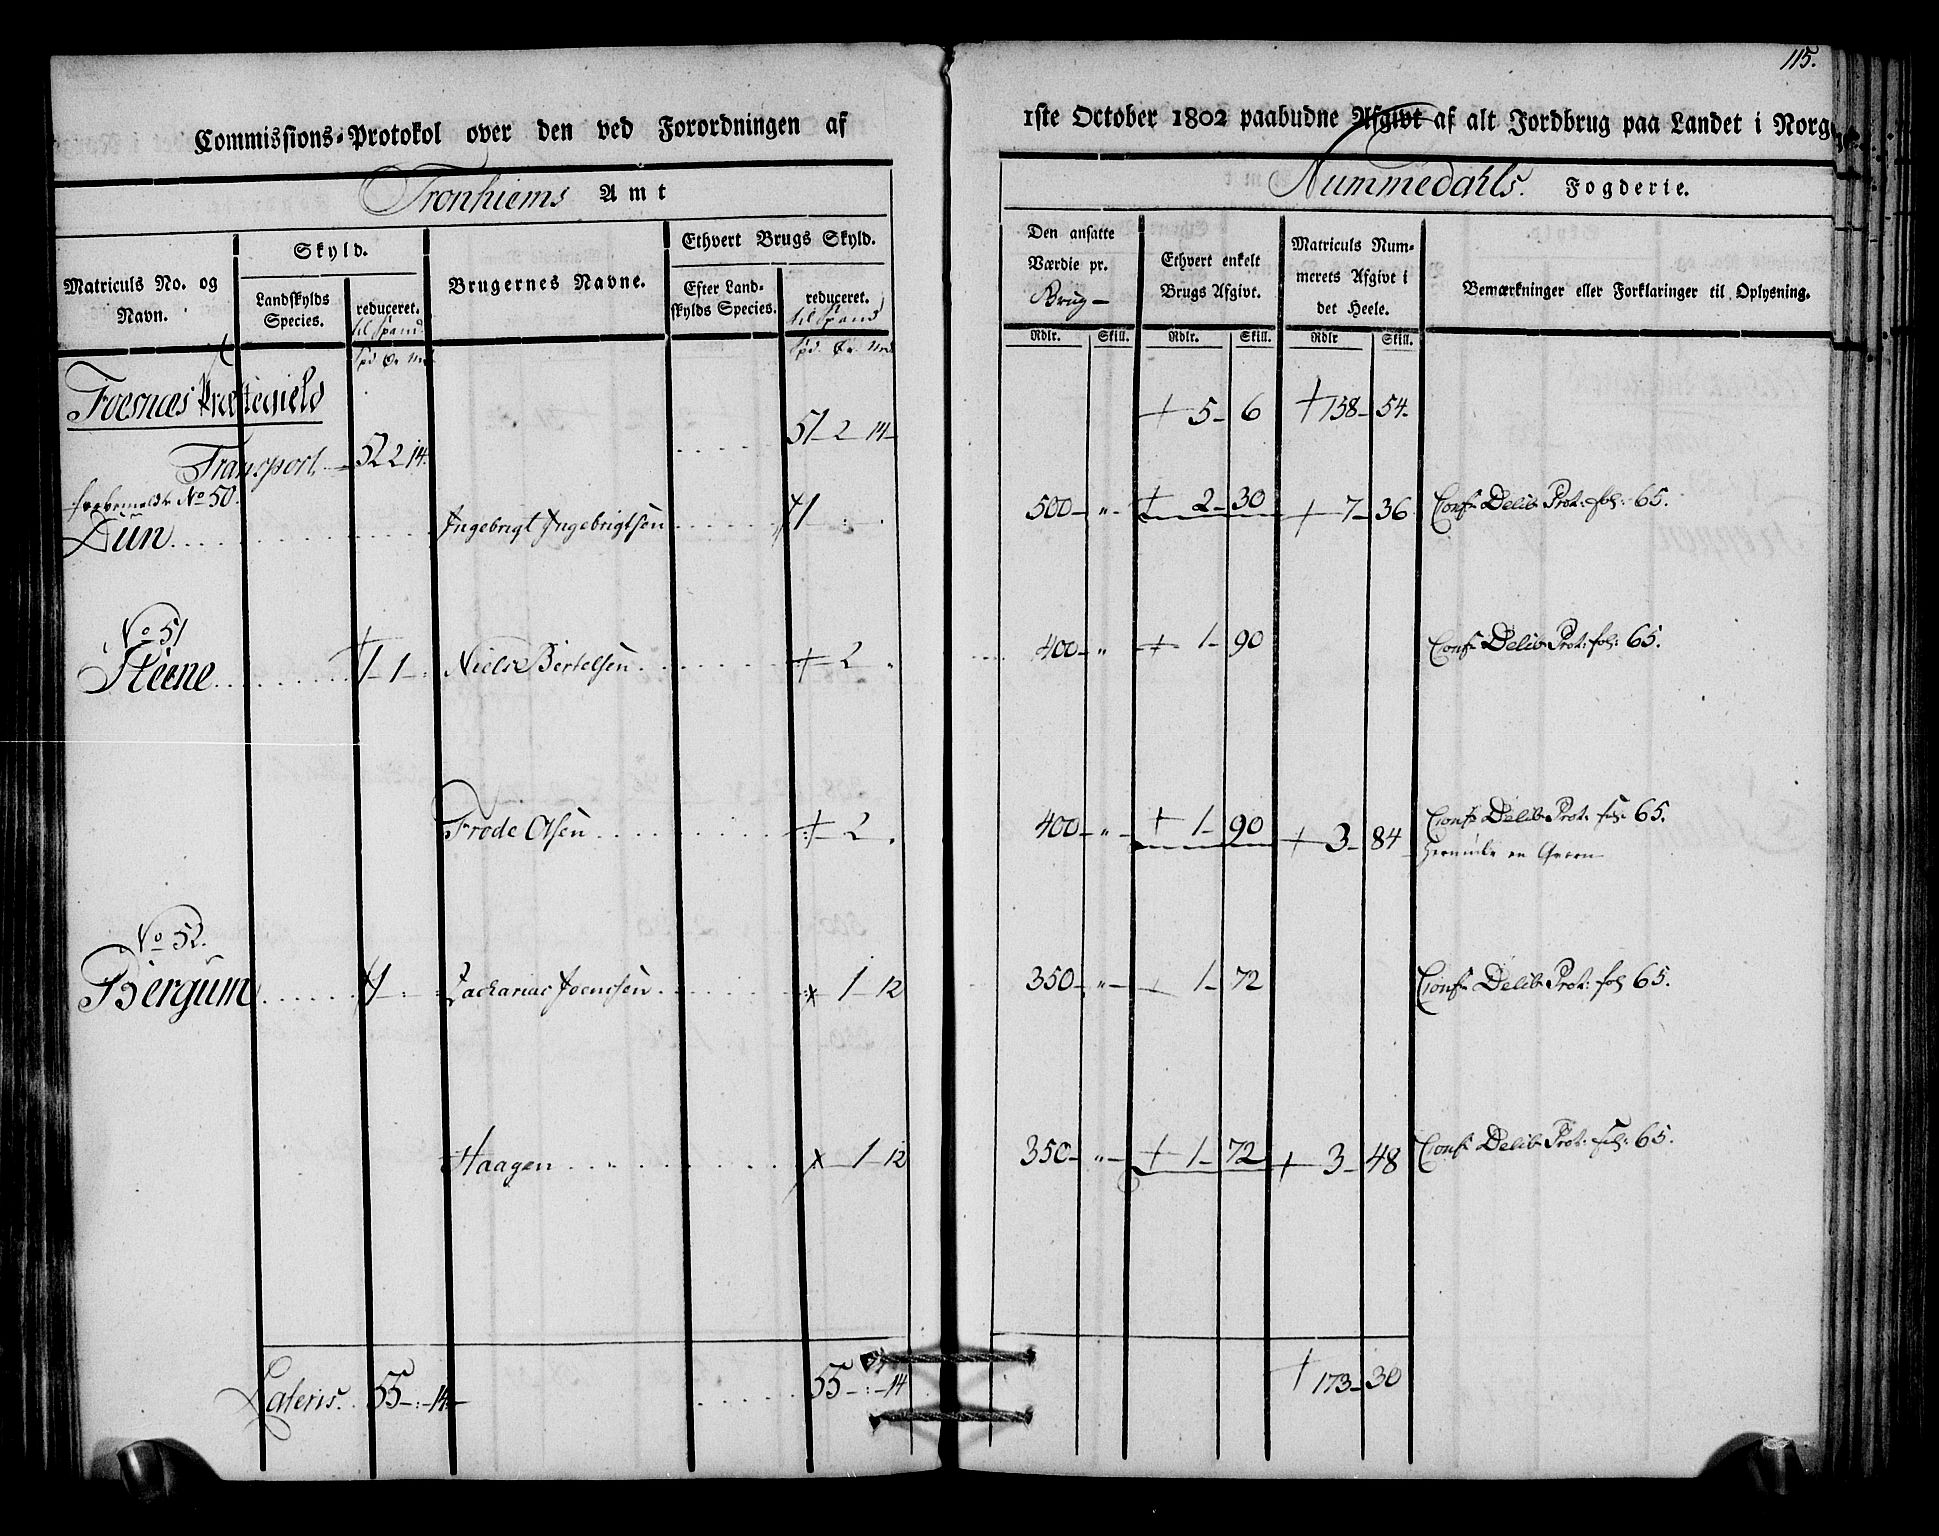 115.
Commissions-Protokol over den ved Forordningen af
1ste October 1802 paabudne Afgivt af alt Jordbrug paa Landet i Norg
Tronhiems Amt
Nummedahls. Fogderie.
Matriculs No. og Navn.
Skyld.
Landskylds Species.
reduceret.
til Spand.
Brugernes Navne.
Ethvert Brugs Skyld.
Efter Landskylds Species.
reduceret.
til Spand
Den ansatte Værdie pr.
Brug
Ethvert enkelt Brugs Afgivt.
Matriculs Nummerets Afgivt i det Heele.
Bemærkninger eller Forklaringer til Oplysning.
Rdlr. Skill. Rdlr. Skill. Rdlr Skill.
Foesnæs Præstegield
Transport. 52 2 14. 51 2 14 + 5 6 + 158 54.
No 50.
Dun Ingebrigt Ingebrigtsen 1 500 " + 2 30 + 7 36 Conf Delib Prot: fol: 65.
No 51
Steene 1 1 Niels Bertelsen + 2 400 " + 1 90 Conf Delib Prot: fol: 65.
Frode Olsen + 2 400 " + 1 90 + 3 84 Conf Delib Prot: fol: 65.
en Qvern
No 52.
Bergum 1 Zacharias Joenssen 1 12 350 " + 1 72 Conf Delib Prot: fol 65.
Haagen 1 12 350 " + 1 72 + 3 48 Conf Delib Prot: fol: 65.
Lateris. 55 : 14 55 : 14 + 173 30